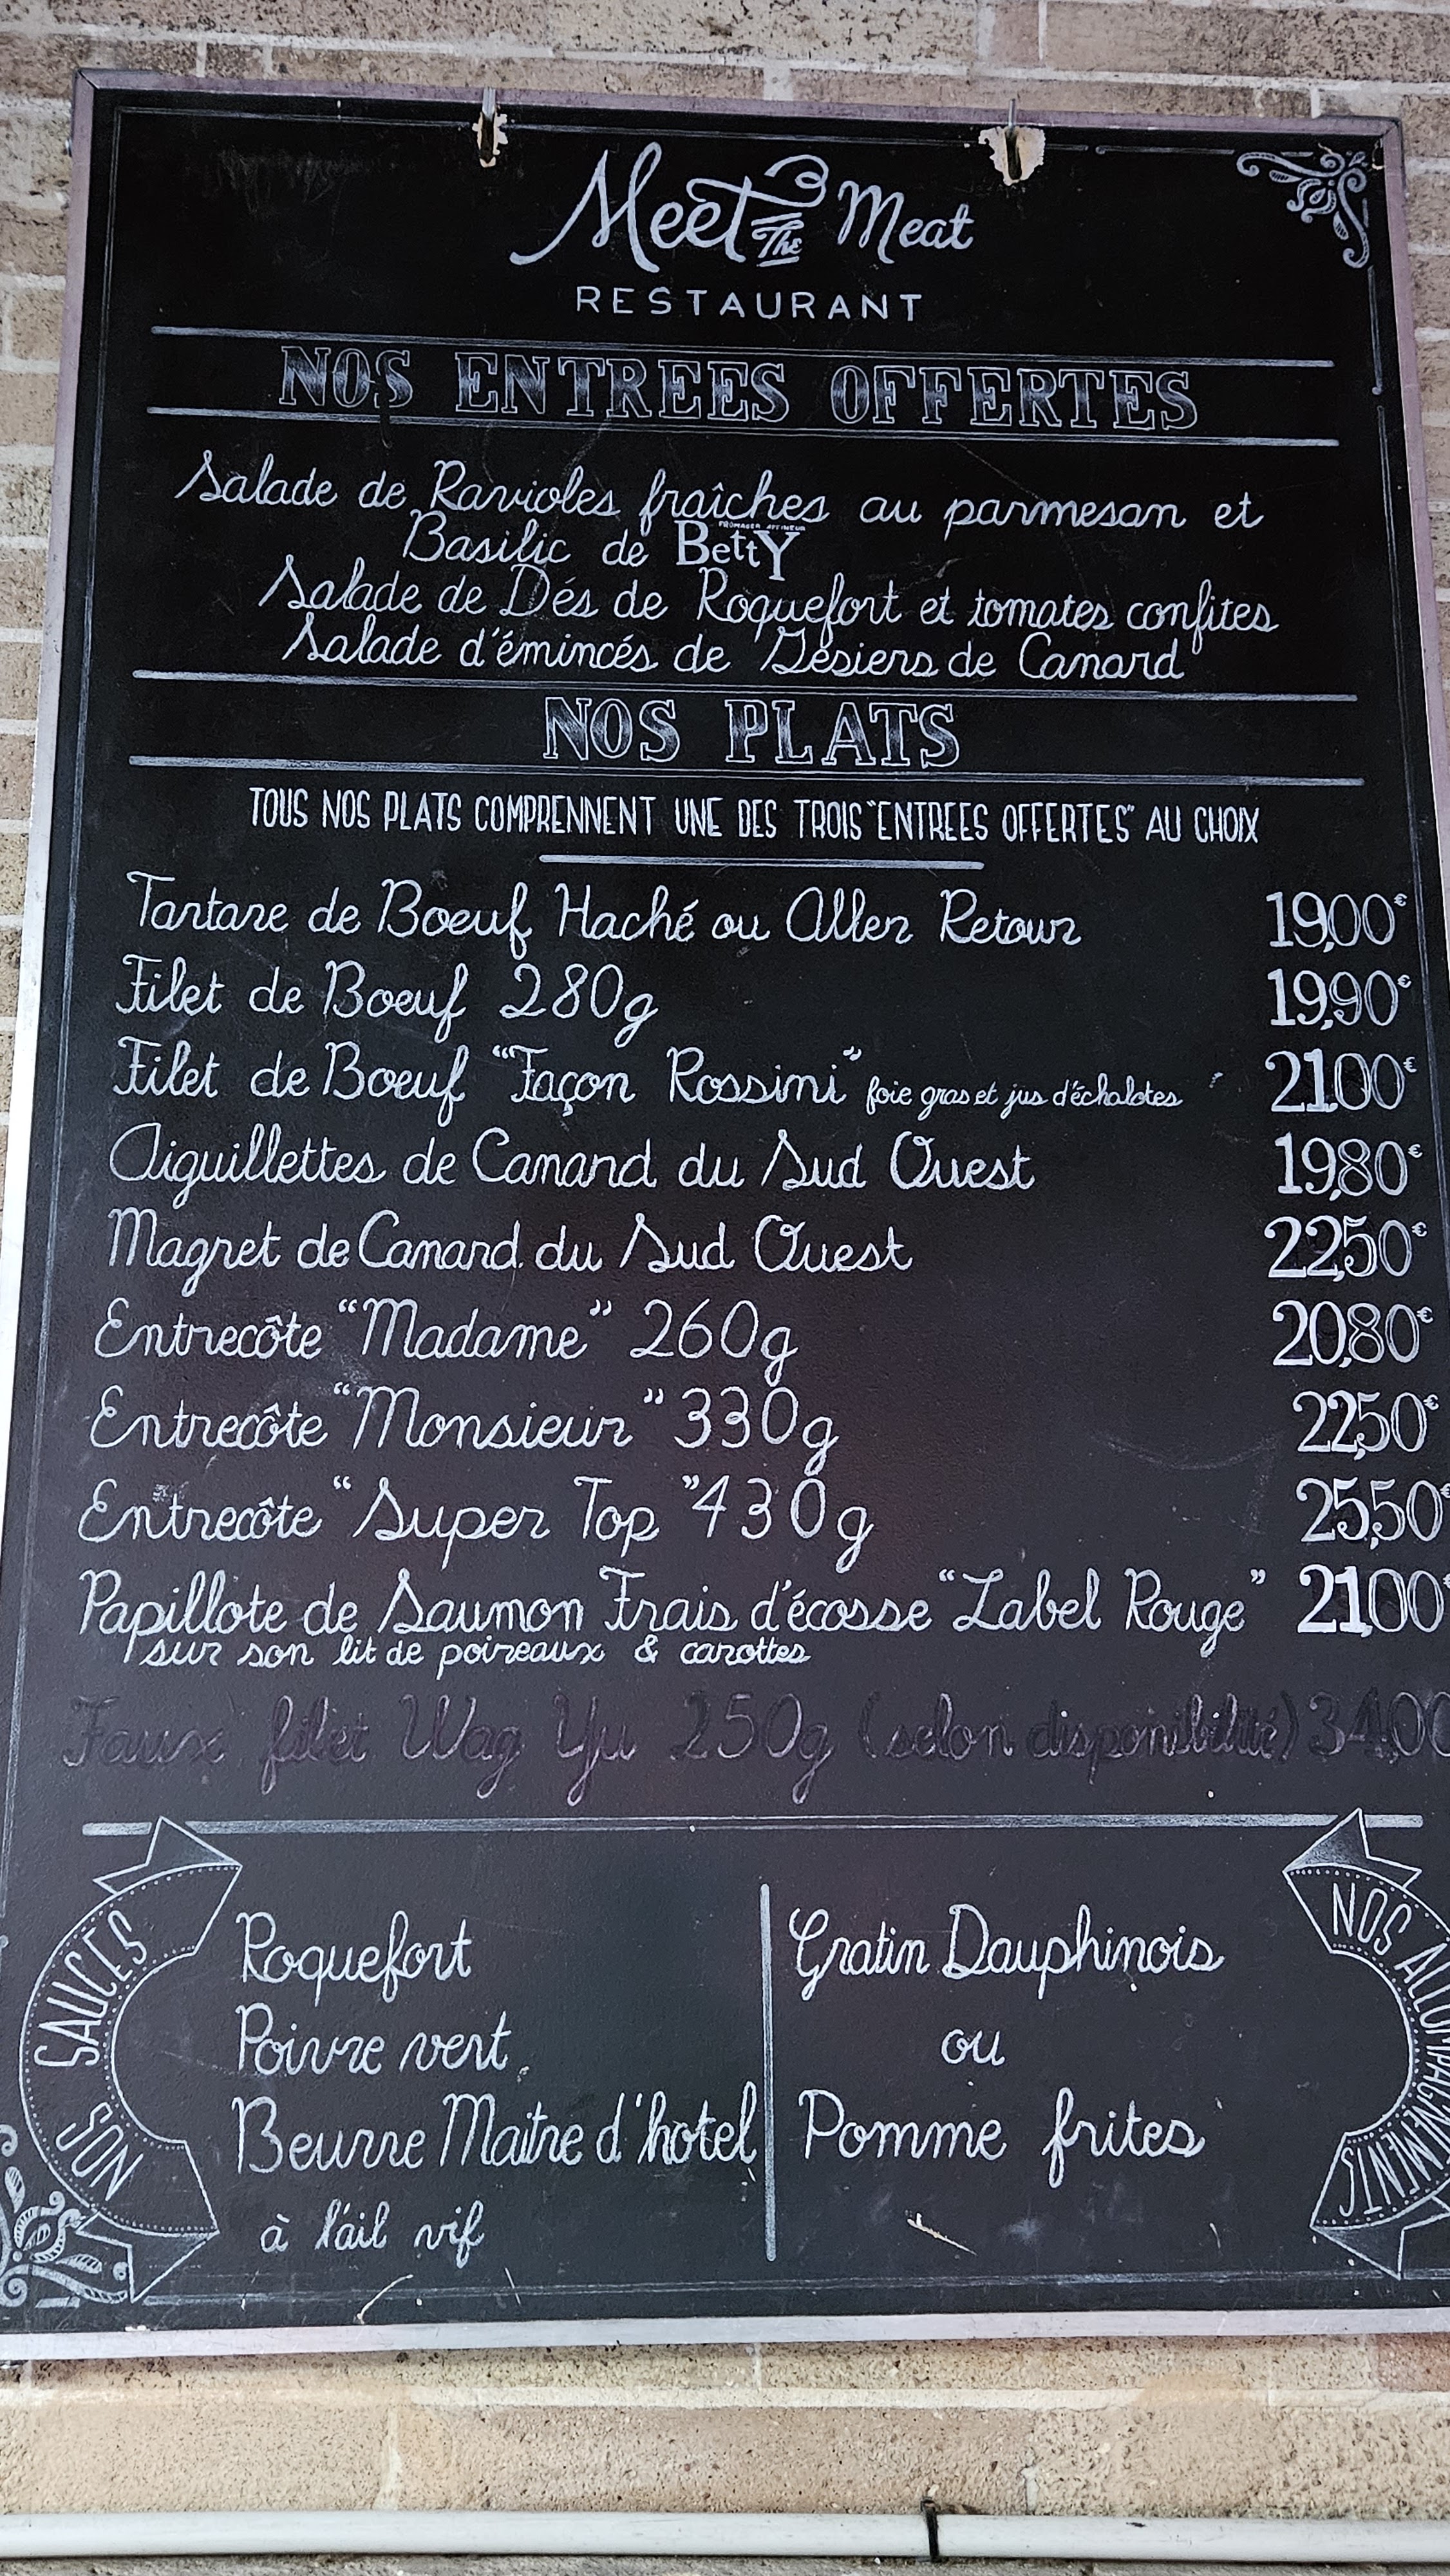 Meet The Meat
RESTAURANT
NOS ENTREES OFFERTES
Salade de Ravioles fraîches au parmesan et
FROMAGER AFFINEUR
Basilic de BettY
Salade de Dés de Roquefort et tomates confites
Salade d'émincés de Gésiers de Canard
NOS PLATS
TOUS NOS PLATS COMPRENNENT UNE DES TROIS "ENTREES OFFERTES" AU CHOIX
Tartare de Boeuf Haché ou Aller Retour 19,00€
Filet de Boeuf 280g 19,90€
Filet de Boeuf "Façon Rossini" foie gras et jus d'échalotes 21,00€
Aiguillettes de Canard du Sud Ouest 19,80€
Magret de Canard du Sud Ouest 22,50€
Entrecôte "Madame" 260g 20,80€
Entrecôte "Monsieur" 330g 22,50€
Entrecôte "Super Top" 430g 25,50€
Papillote de Saumon Frais d'écosse "Label Rouge" 21,00€
sur son lit de poireaux & carottes
Faux filet Wag Yu 250g (selon disponibilité) 34,00
NOS SAUCES
Roquefort
Poivre vert
Beurre Maitre d'hotel
à l'ail vif
NOS ACCOMPAGNEMENTS
Gratin Dauphinois
ou
Pomme frites